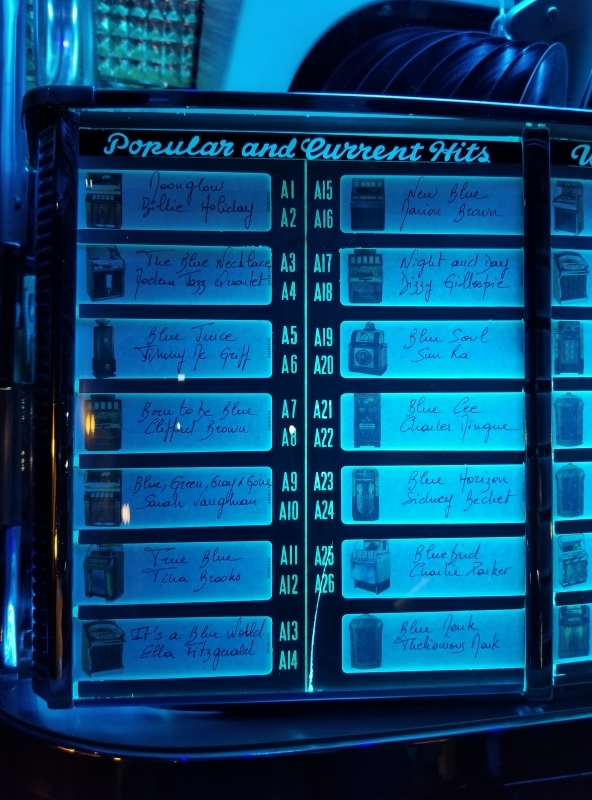 Popular and Current Hits
Moonglow
Billie Holiday
A1
A2
The Blue Necklace
Modern Jazz Quartet
A3
A4
Blue Juice
Jimmy Mc Griff
A5
A6
Born to be Blue
Clifford Brown
A7
A8
Blue, Green, Gray & Gone
Sarah Vaughman
A9
A10
True Blue
Tina Brooks
A11
A12
It's a Blue World
Ella Fitzgerald
A13
A14
A15
A16
New Blue
Marion Brown
A17
A18
Night and Day
Dizzy Gillespie
A19
A20
Blue Soul
Sun Ra
A21
A22
Blue Cee
Charles Mingue
A23
A24
Blue Horizon
Sidney Bechet
A25
A26
Bluebird
Charlie Parker
Blue Monk
Thelionious Monk